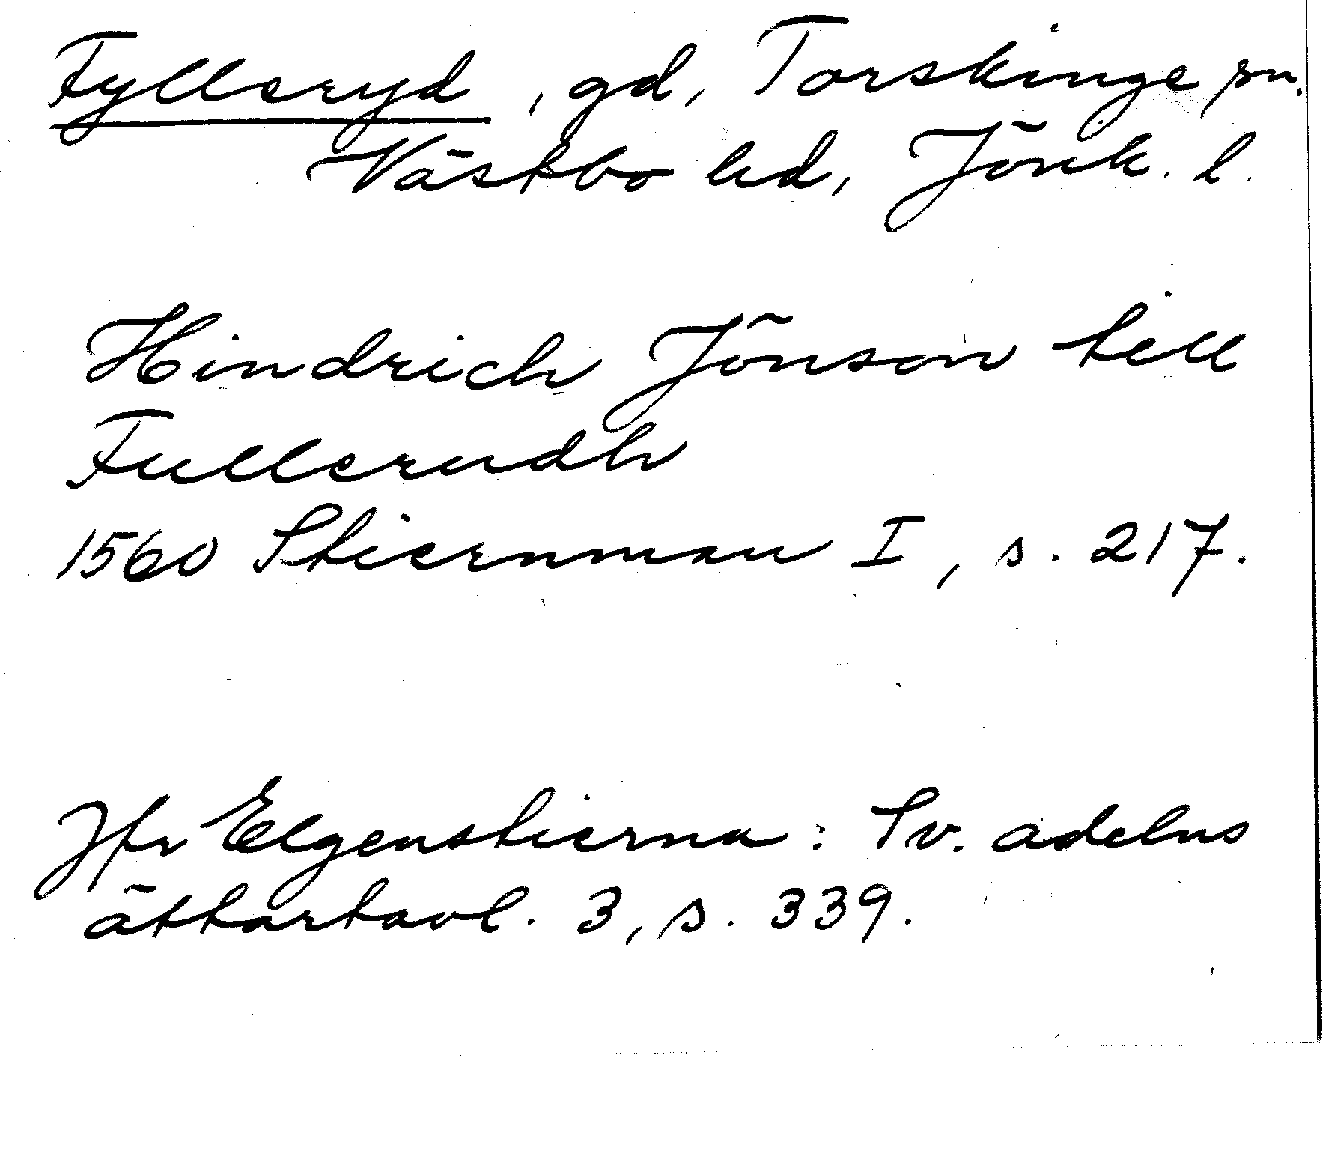 Fylleryd, gd, Torskinge sn.
Västbo hd, Jönk. l.
Hindrich Jönson till
Fullerudh
1560 Stiernman I, s. 217.
Jfr Elgenstierna: Sv. adelns
ättartavl. 3, s. 339.